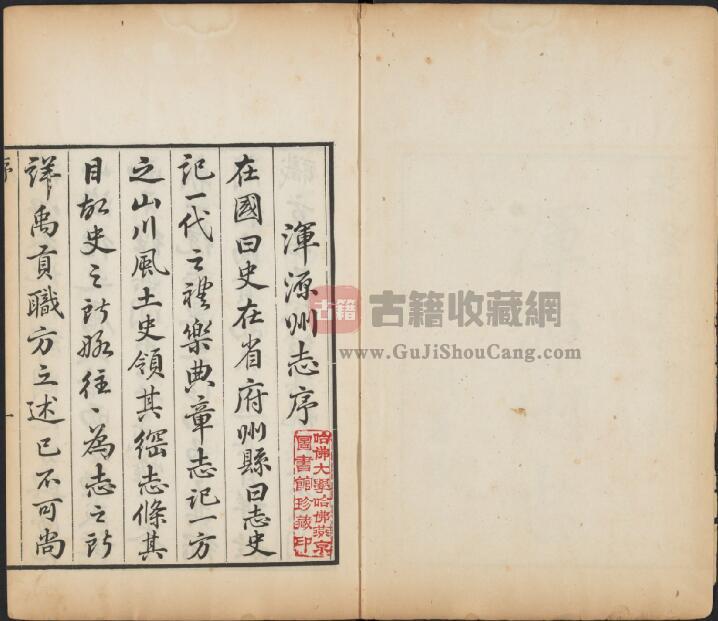 渾源州志序
在國曰史在省府州縣曰志史
記一代之禮樂典章志記一方
之山川風土史領其綱志條其
目故史之所略往〻為志之所
詳禹貢職方之述已不可尚
序
一
哈佛大學哈佛燕京
圖書館珍藏印
古籍
古籍收藏網
www.GuJiShouCang.com